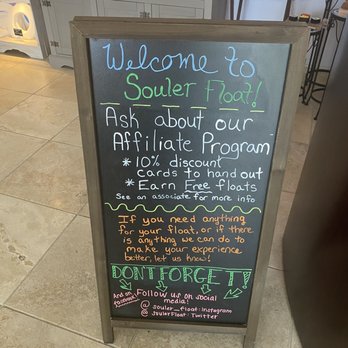 Welcome to
Souler Float!
Ask about our
Affiliate Program
* 10% discount
cards to hand out
* Earn Free floats
See an associate for more info
If you need anything
for your float, or if there
is anything we can do to
make your experience
better, let us know!
DONT FORGET!
And on facebook!
Follow us on social
media!
@souler_float:Instagram
@SoulerFloat:Twitter